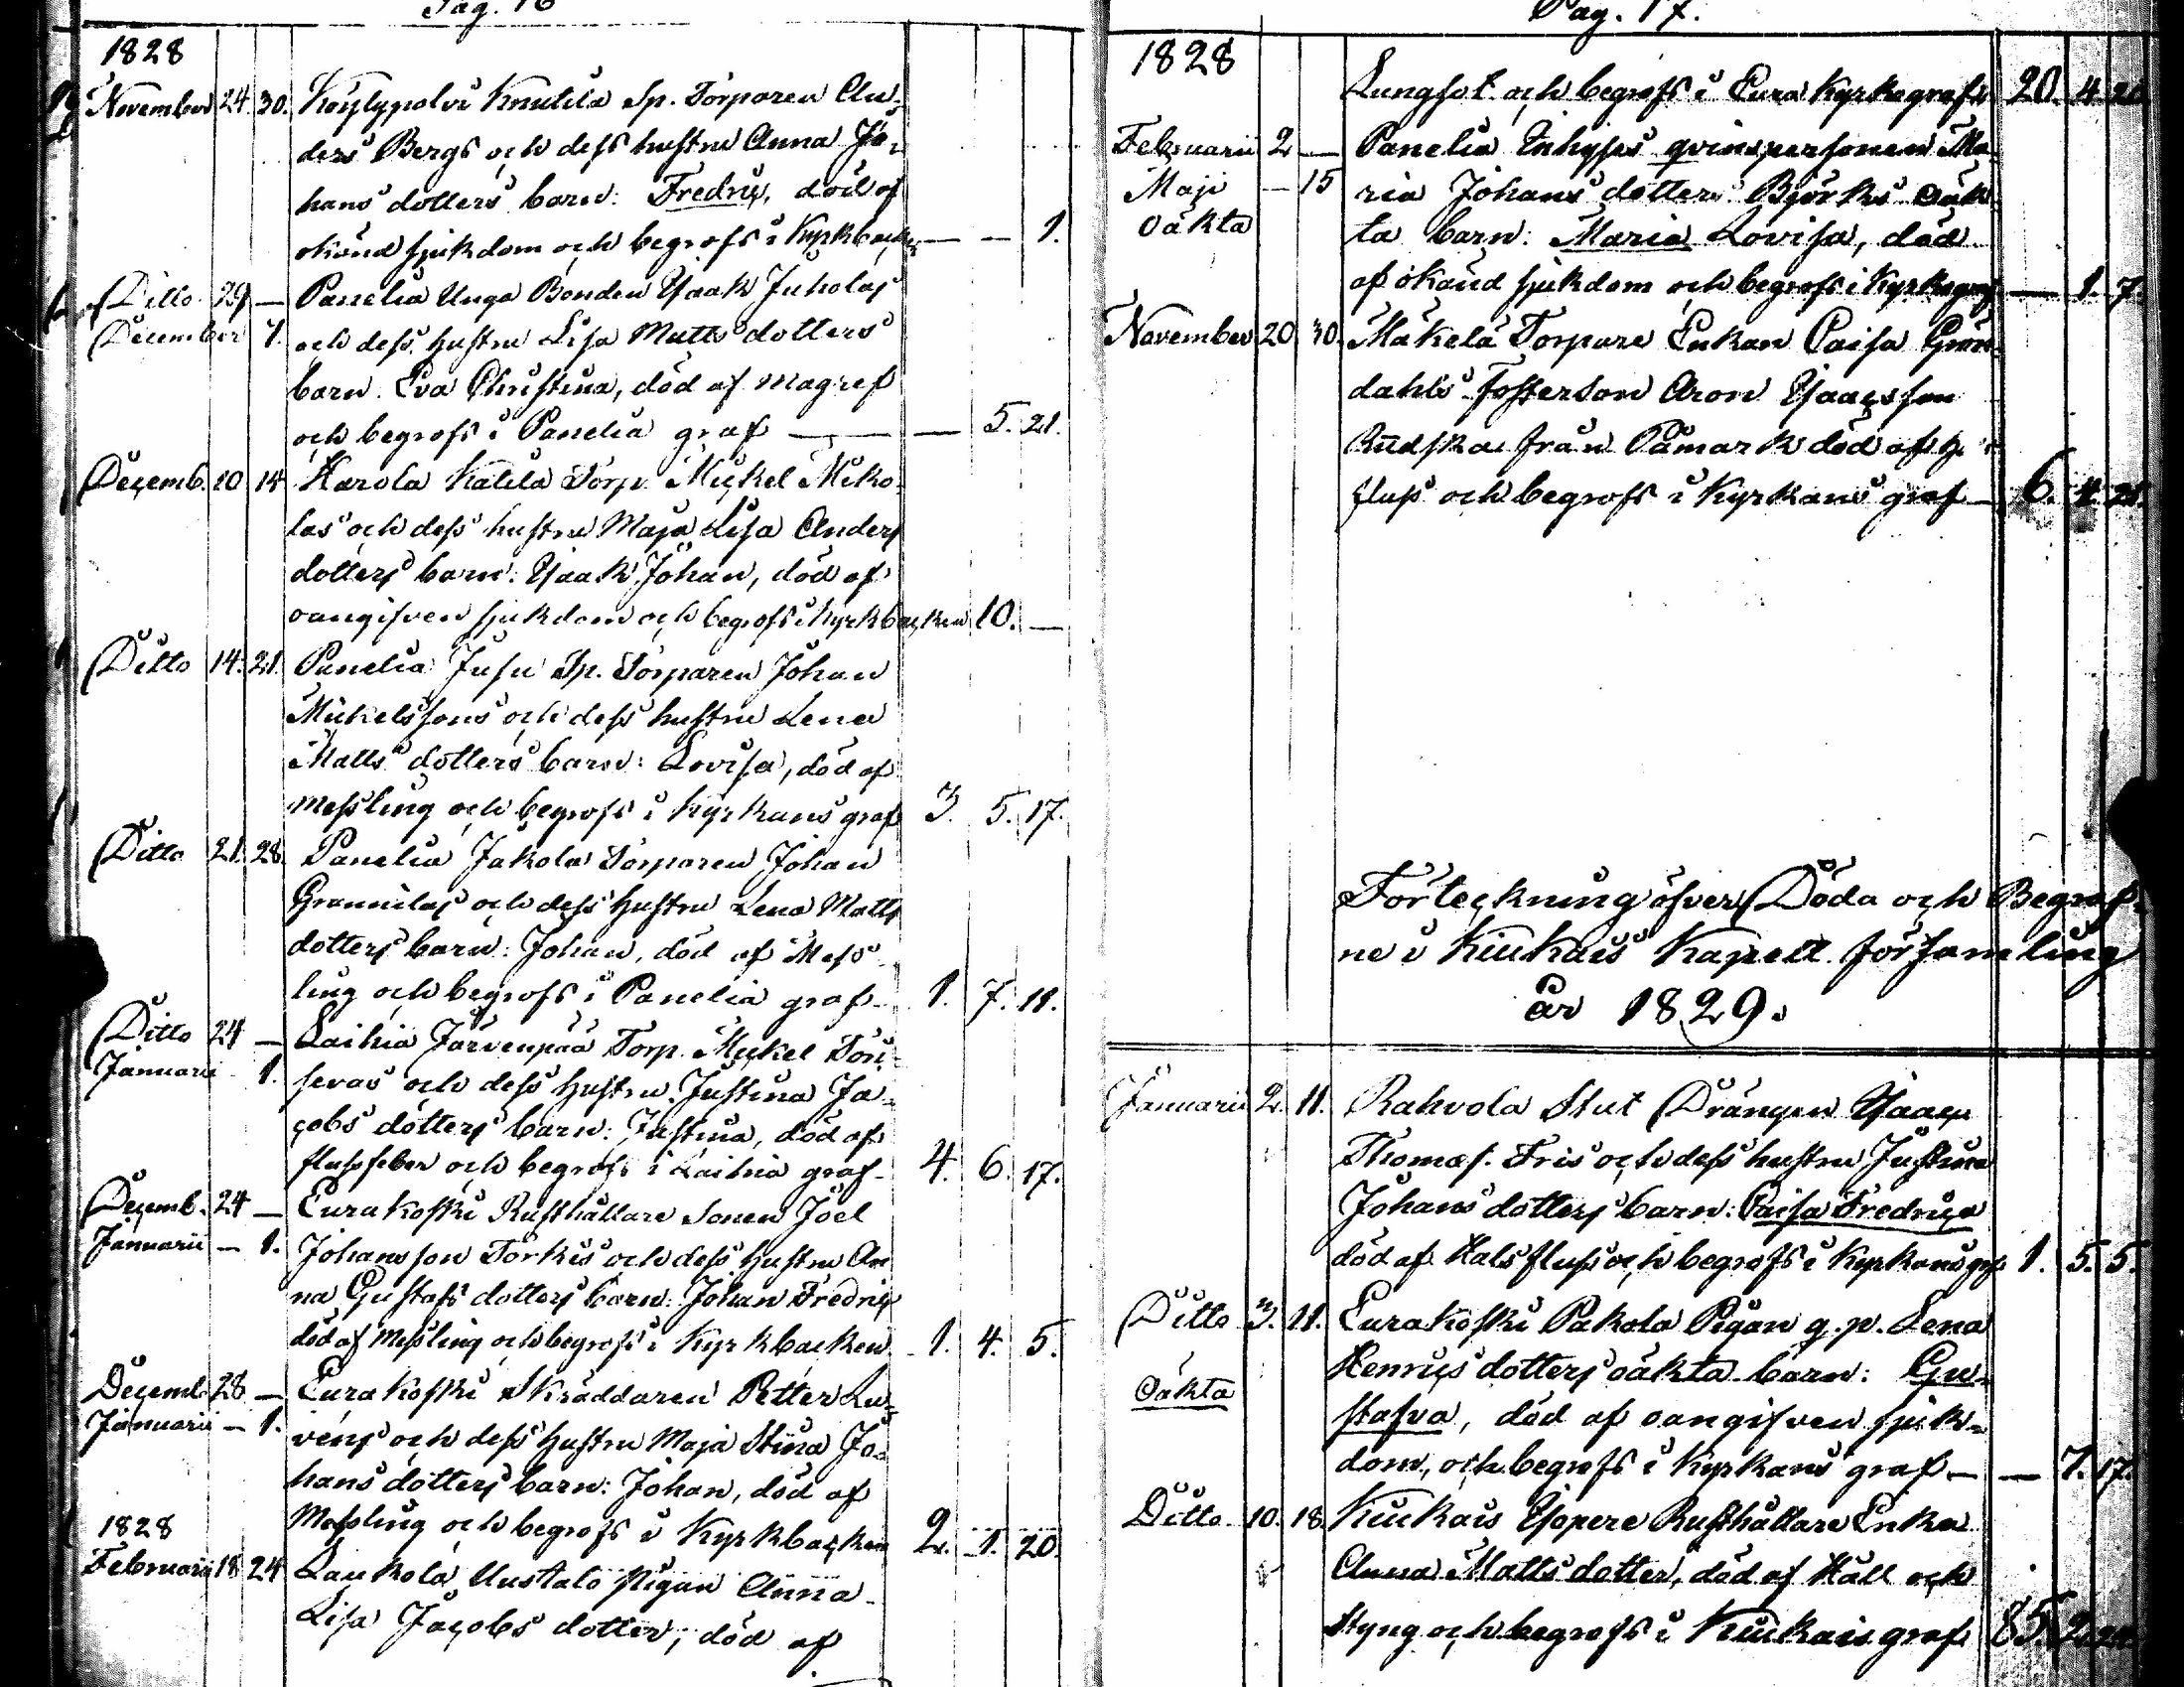 Pag. 16
1828
November 24 30. Köylypolvi Knutila Sp. Torparen An-
ders Bergs och dess hustru Anna Jo-
hans dotters barn: Fredric, död af
okänd sjukdom och begrofs i Kyrkbacken — — 1.
Ditto 29 — Panelia Unga Bonden Isaak Juholas
December 7. och dess hustru Lisa Matts dotters
barn Eva Christina, död af magref
och begrofs i Panelia graf — — 5. 21.
Decemb. 10 14 Harola Katila Torp. Mickel Miko-
las och dess hustru Maja Lisa Anders
dotters barn: Isaak Johan, död af
oangifven sjukdom och begrofs i Kyrkbacken 10. —
Ditto 14. 21. Panelia Jusu Sp. Torparen Johan
Mickelssons och dess hustru Lena
Matts dotters barn: Lovisa, död af
Messling och begrofs i Kyrkans graf 3. 5. 17.
Ditto 21. 28. Panelia Jakola Torparen Johan
Grannilas och dess hustru Lena Matts
dotters barn: Johan, död af Mess-
ling och begrofs i Panelia graf 1. 7. 11.
Ditto 24 — Laihia Järvenpää Torp. Mickel
Januarii 1. och dess hustru Justina Ja-
cobs dotters barn: Justina, död af
flussfeber och begrofs i Laihia graf 4. 6. 17.
Decemb. 24 — Eurakoski Rusthållare Sonen Joel
Januarii — 1. Johansson Torkis och dess hustru An
na Gustafs dotters barn: Johan Fredric
död af Messling och begrofs i Kyrkbacken 1. 4. 5.
Decemb 28 — Eurakoski Skräddaren Petter Lu-
Januarii — 1. vens och dess hustru Maja Stina Jo-
hans dotters barn: Johan, död af
Messling och begrofs i Kyrkbacken 2. 1. 20.
1828
Februarii 18 24 Laukola Uustalo Pigan Anna
Lisa Jacobs dotter, död af
Pag. 17.
1828
Lungsot och begrofs i Eura Kyrkograf 20. 4
Februarii 2 — Panelia Inhyses qvinspersonen Ma-
Maji — 15 ria Johans dotters Björks oäk
Oäkta ta barn: Maria Lovisa, död
af okänd sjukdom och begrofs i Kyrkograf — 1. 7.
November 20 30. Mäkelä Torpare Enkan Caisa Grön-
dahls Fosterson Aron Isaacsson
från Påmark död af
fluss och begrofs i Kyrkans graf — 6. 4. 21.
Förteckning öfver Döda och Begraf-
ne i Kiukais Kapell församling
år 1829.
Januarii 2. 11. Rahvola Stut Drängen Isaac
Thomas. Fris och dess hustru Justina
Johans dotters barn: Caisa Fredrica
död af Halsfluss och begrofs i Kyrkans graf 1. 5. 5.
Ditto 3. 11. Eurakoski Pakola Pigan q.p. Lena
Henrics dotters oäkta barn: Gu-
Oäkta stafva, död af oangifven sjuk-
dom, och begrofs i Kyrkans graf — — 7. 17.
Ditto 10. 18 Kiukais Isopere Rusthållare Enkan
Anna Matts dotter, död af Håll och
Styng och begrofs i Kiukais graf 85. 2.